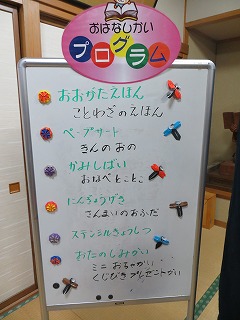 おはなしかい
プログラム
おおがたえほん
ことわざのえほん
ペープサート
きんのおの
かみしばい
おなべとことこ
にんぎょうげき
さんまいのおふだ
ステンシルきょうしつ
おたのしみかい
ミニ おちゃかい
くじびきプレゼントかい